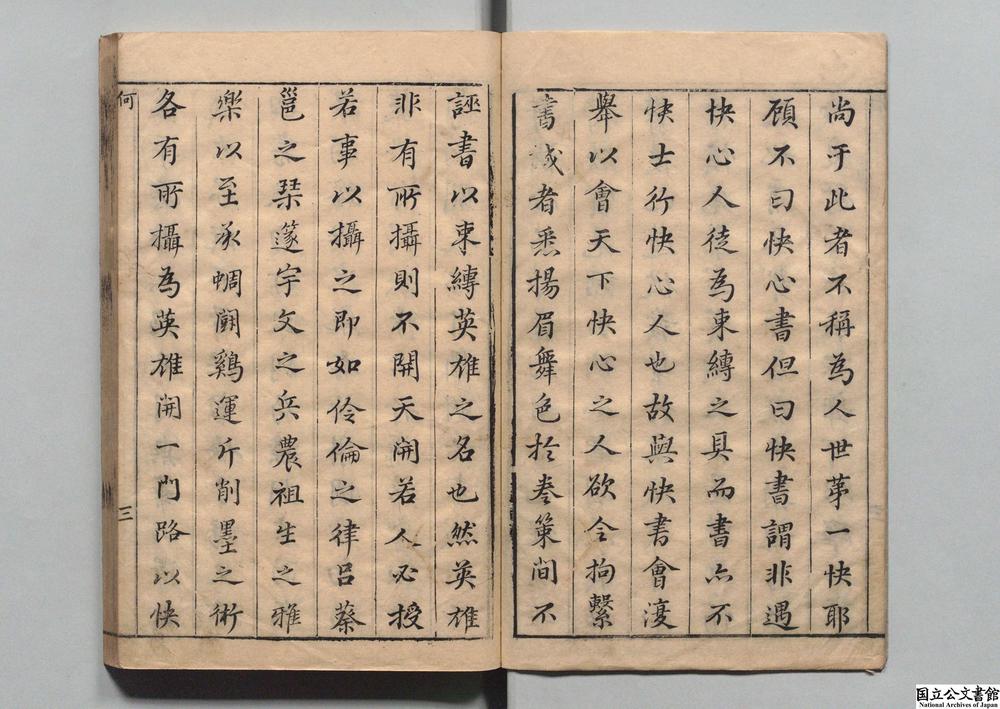 尚于此者不稱為人世苐一快耶
顧不曰快心書但曰快書謂非遇
快心人徒為束縛之具而書亦不
快士行快心人也故與快書會凄
舉以會天下快心之人欲令拘繫
書城者悉揚眉舞色於卷策間不
誣書以束縛英雄之名也然英雄
非有所攝則不開天開若人必授
若事以攝之即如伶倫之律呂蔡
邕之琹籧宇文之兵農祖生之雅
樂以至承蜩鬬鷄運斤削墨之術
各有所攝為英雄開一門路以快
何
三
国立公文書館
National Archives of Japan